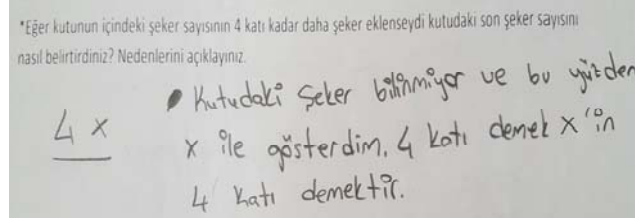 "Eğer kutunun içindeki şeker sayısının 4 katı kadar daha şeker eklenseydi kutudaki son şeker sayısını
nasıl belirtirdiniz? Nedenlerini açıklayınız.
• Kutudaki şeker bilinmiyor ve bu yüzden
x ile gösterdim. 4 katı demek x'in
4 katı demektir.
4x